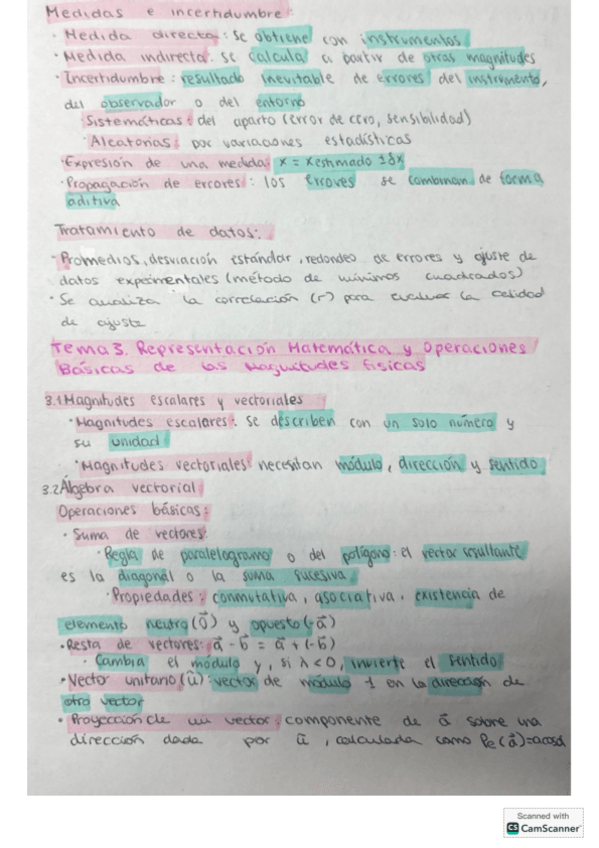 Medidas e incertidumbre:
· Medida directa: se obtiene con instrumentos
· Medida indirecta: se calcula a partir de otras magnitudes
· Incertidumbre: resultado inevitable de errores del instrumento,
del observador o del entorno
· Sistemáticas: del aparto (error de cero, sensibilidad)
· Aleatorias: por variaciones estadísticas
· Expresión de una medida: x = xestimado ± δx
· Propagación de errores: los errores se combinan de forma
aditiva
Tratamiento de datos:
· Promedios, desviación estándar, redondeo de errores y ajuste de
datos experimentales (método de mínimos cuadrados)
· Se analiza la correlación (r) para evaluar la calidad
de ajuste
Tema 3. Representación Matemática y Operaciones
Básicas de las Magnitudes físicas
3.1 Magnitudes escalares y vectoriales
· Magnitudes escalares: se describen con un solo número y
su unidad
· Magnitudes vectoriales: necesitan módulo, dirección y sentido
3.2 Álgebra vectorial
Operaciones básicas:
· Suma de vectores:
· Regla de paralelogramo o del polígono: el vector resultante
es la diagonal o la suma sucesiva
· Propiedades: conmutativa, asociativa, existencia de
elemento neutro (0⃗) y opuesto (-a⃗)
· Resta de vectores: a⃗ - b⃗ = a⃗ + (-b⃗)
· Cambia el módulo y, si λ < 0, invierte el sentido
· Vector unitario (u⃗): vector de módulo 1 en la dirección de
otro vector
· Proyección de un vector: componente de a⃗ sobre una
dirección dada por u⃗, calculada como Pe(a⃗)=a cosα
Scanned with
CS CamScanner